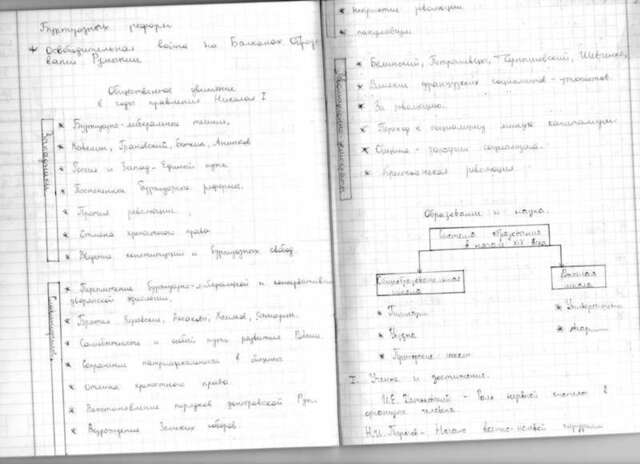 Буржуазных реформ
* Освободительная война на Балканах. Образо
вание Румынии.
Общественное движение
в годы правления Николая I
Западники
* Буржуазно-либеральное течение.
* Кавелин, Грановский, Боткин, Анненков
* Россия и Запад - Единый путь
* Постепенные буржуазные реформы.
* Против революции.
* Отмена крепостного права
* Введение конституции и буржуазных свобод.
Славянофилы
* Переплетение буржуазно-либеральной и консервативно
дворянской идеологии.
* Братья Киреевские, Аксаковы, Хомяков, Самарин.
* Самобытность и особый путь развития России
* Сохранение патриархальности в общине
* Отмена крепостного права
* Восстановление порядков допетровской Руси.
* Возрождение Земских соборов
* неприятие революции
* Белинский, Петрашевцы, Чернышевский, Шевченко,
* Влияние французских социалистов-утопистов.
* За революцию.
* Переход к социализму минуя капитализм.
* Община - социализма.
* Крестьянская революция
Образование и наука.
Система образования
в начале XIX века
Общеобразовательная
школа
* Гимназии
* Уездные
* Приходские
* Университеты
I. Ученые и достижения.
Роль нервной системы в
организме человека.
Н.И. Пирогов - Начало военно-полевой хирургии